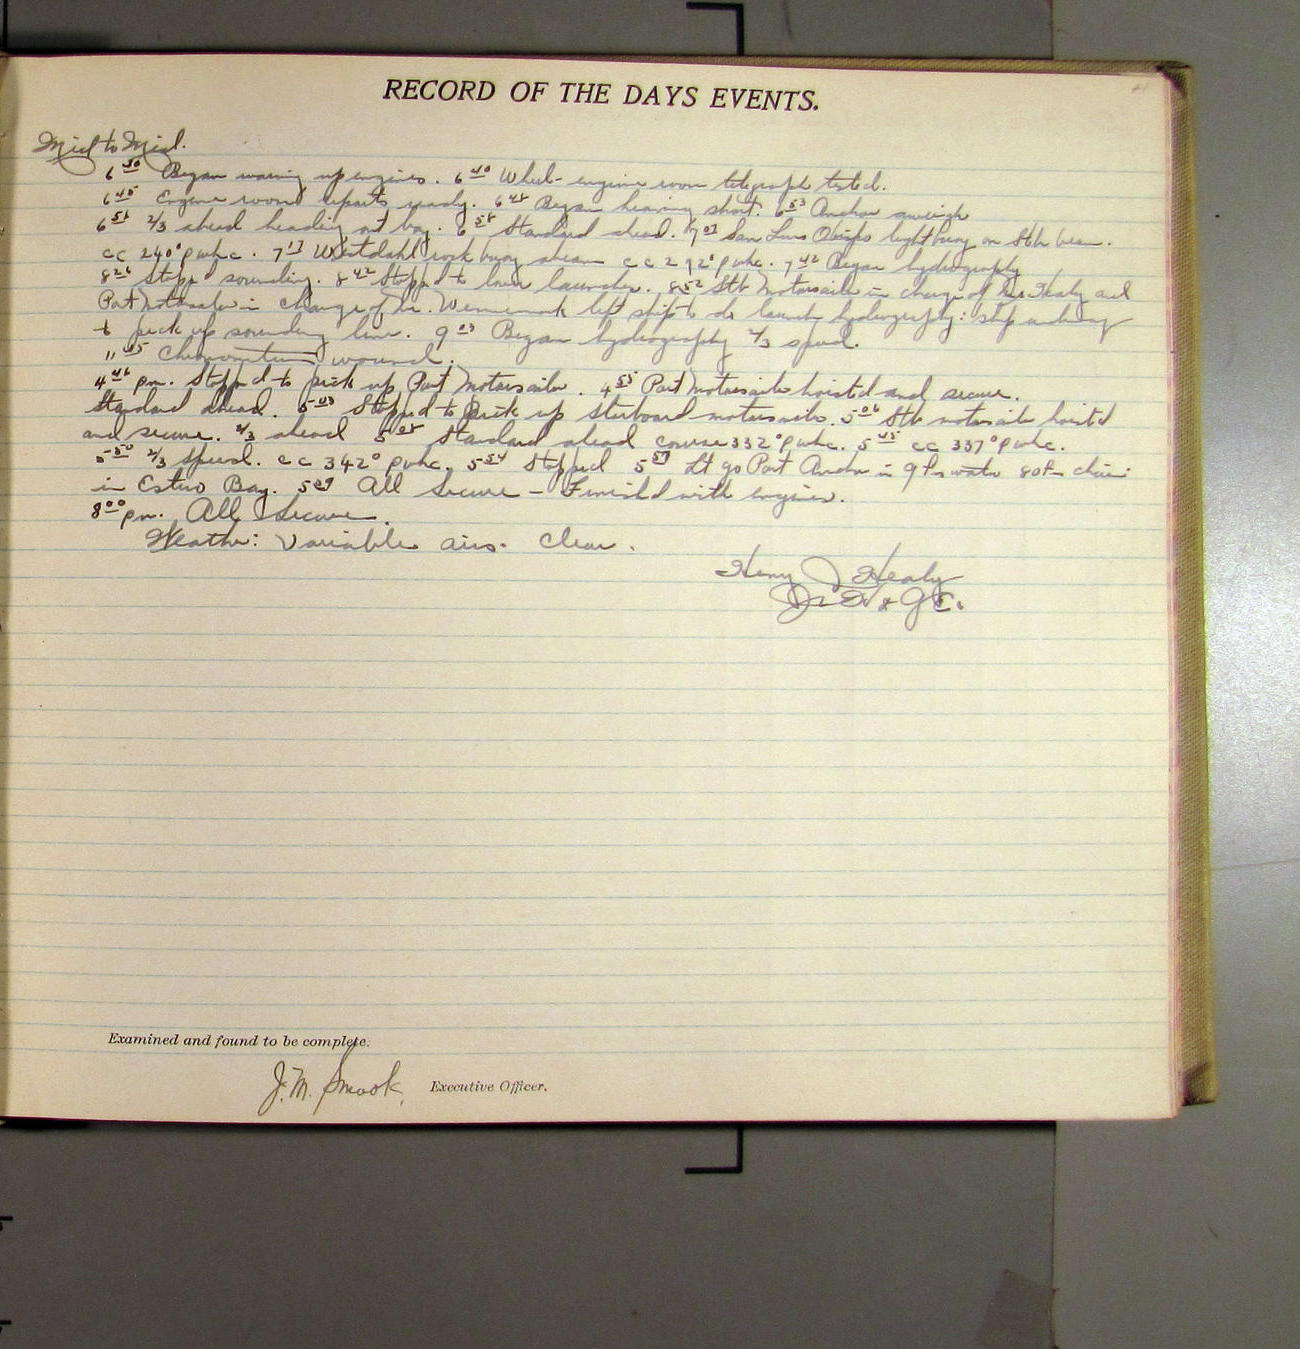 RECORD OF THE DAYS EVENTS.
Mid to Mid.
6 30 Began warming up engines. 6 40 Wheel- engine room telegraph tested.
6 45 Engine room reports ready. 6 48 Began heaving short. 6 53 Anchor aweigh
6 54 2/3 ahead heading out bay. 6 58 Standard ahead. 7 07 San Luis Obispo lightbuoy on Stb beam.
cc 240° pwhc. 7 17 Westdahl rock buoy abeam cc 292° pwhc. 7 42 Began hydrography
8 26 Stopped sounding. 8 42 Stopped to lower launches. 8 52 Stb Motorsailer in charge of Healy and
Port Motorsailer in charge of Mr. Wennermark left ship to do launch hydrography: ship underway
to pick up sounding line. 9 03 Began hydrography 2/3 speed.
11 45 Chronometers wound.
4 46 pm. Stopped to pick up Port Motorsailer. 4 55 Port Motorsailer hoisted and secure.
Standard ahead. 5 03 Stopped to pick up starboard motorsailer. 5 06 Stb motorsailer hoisted
and secure. 2/3 ahead 5 08 Standard ahead course 332° pwhc. 5 45 cc 337° pwhc.
5 50 2/3 speed. cc 342° pwhc. 5 54 Stopped 5 57 Let go Port Anchor in 9 fms water 80 fm chain
in Estero Bay. 5 59 All Secure - Finished with engines.
8 00 pm. All Secure.
Weather: Variable airs. Clear.
Henry J Healy
Jr H & G E.
Examined and found to be complete.
J. M. Smook, Executive Officer.